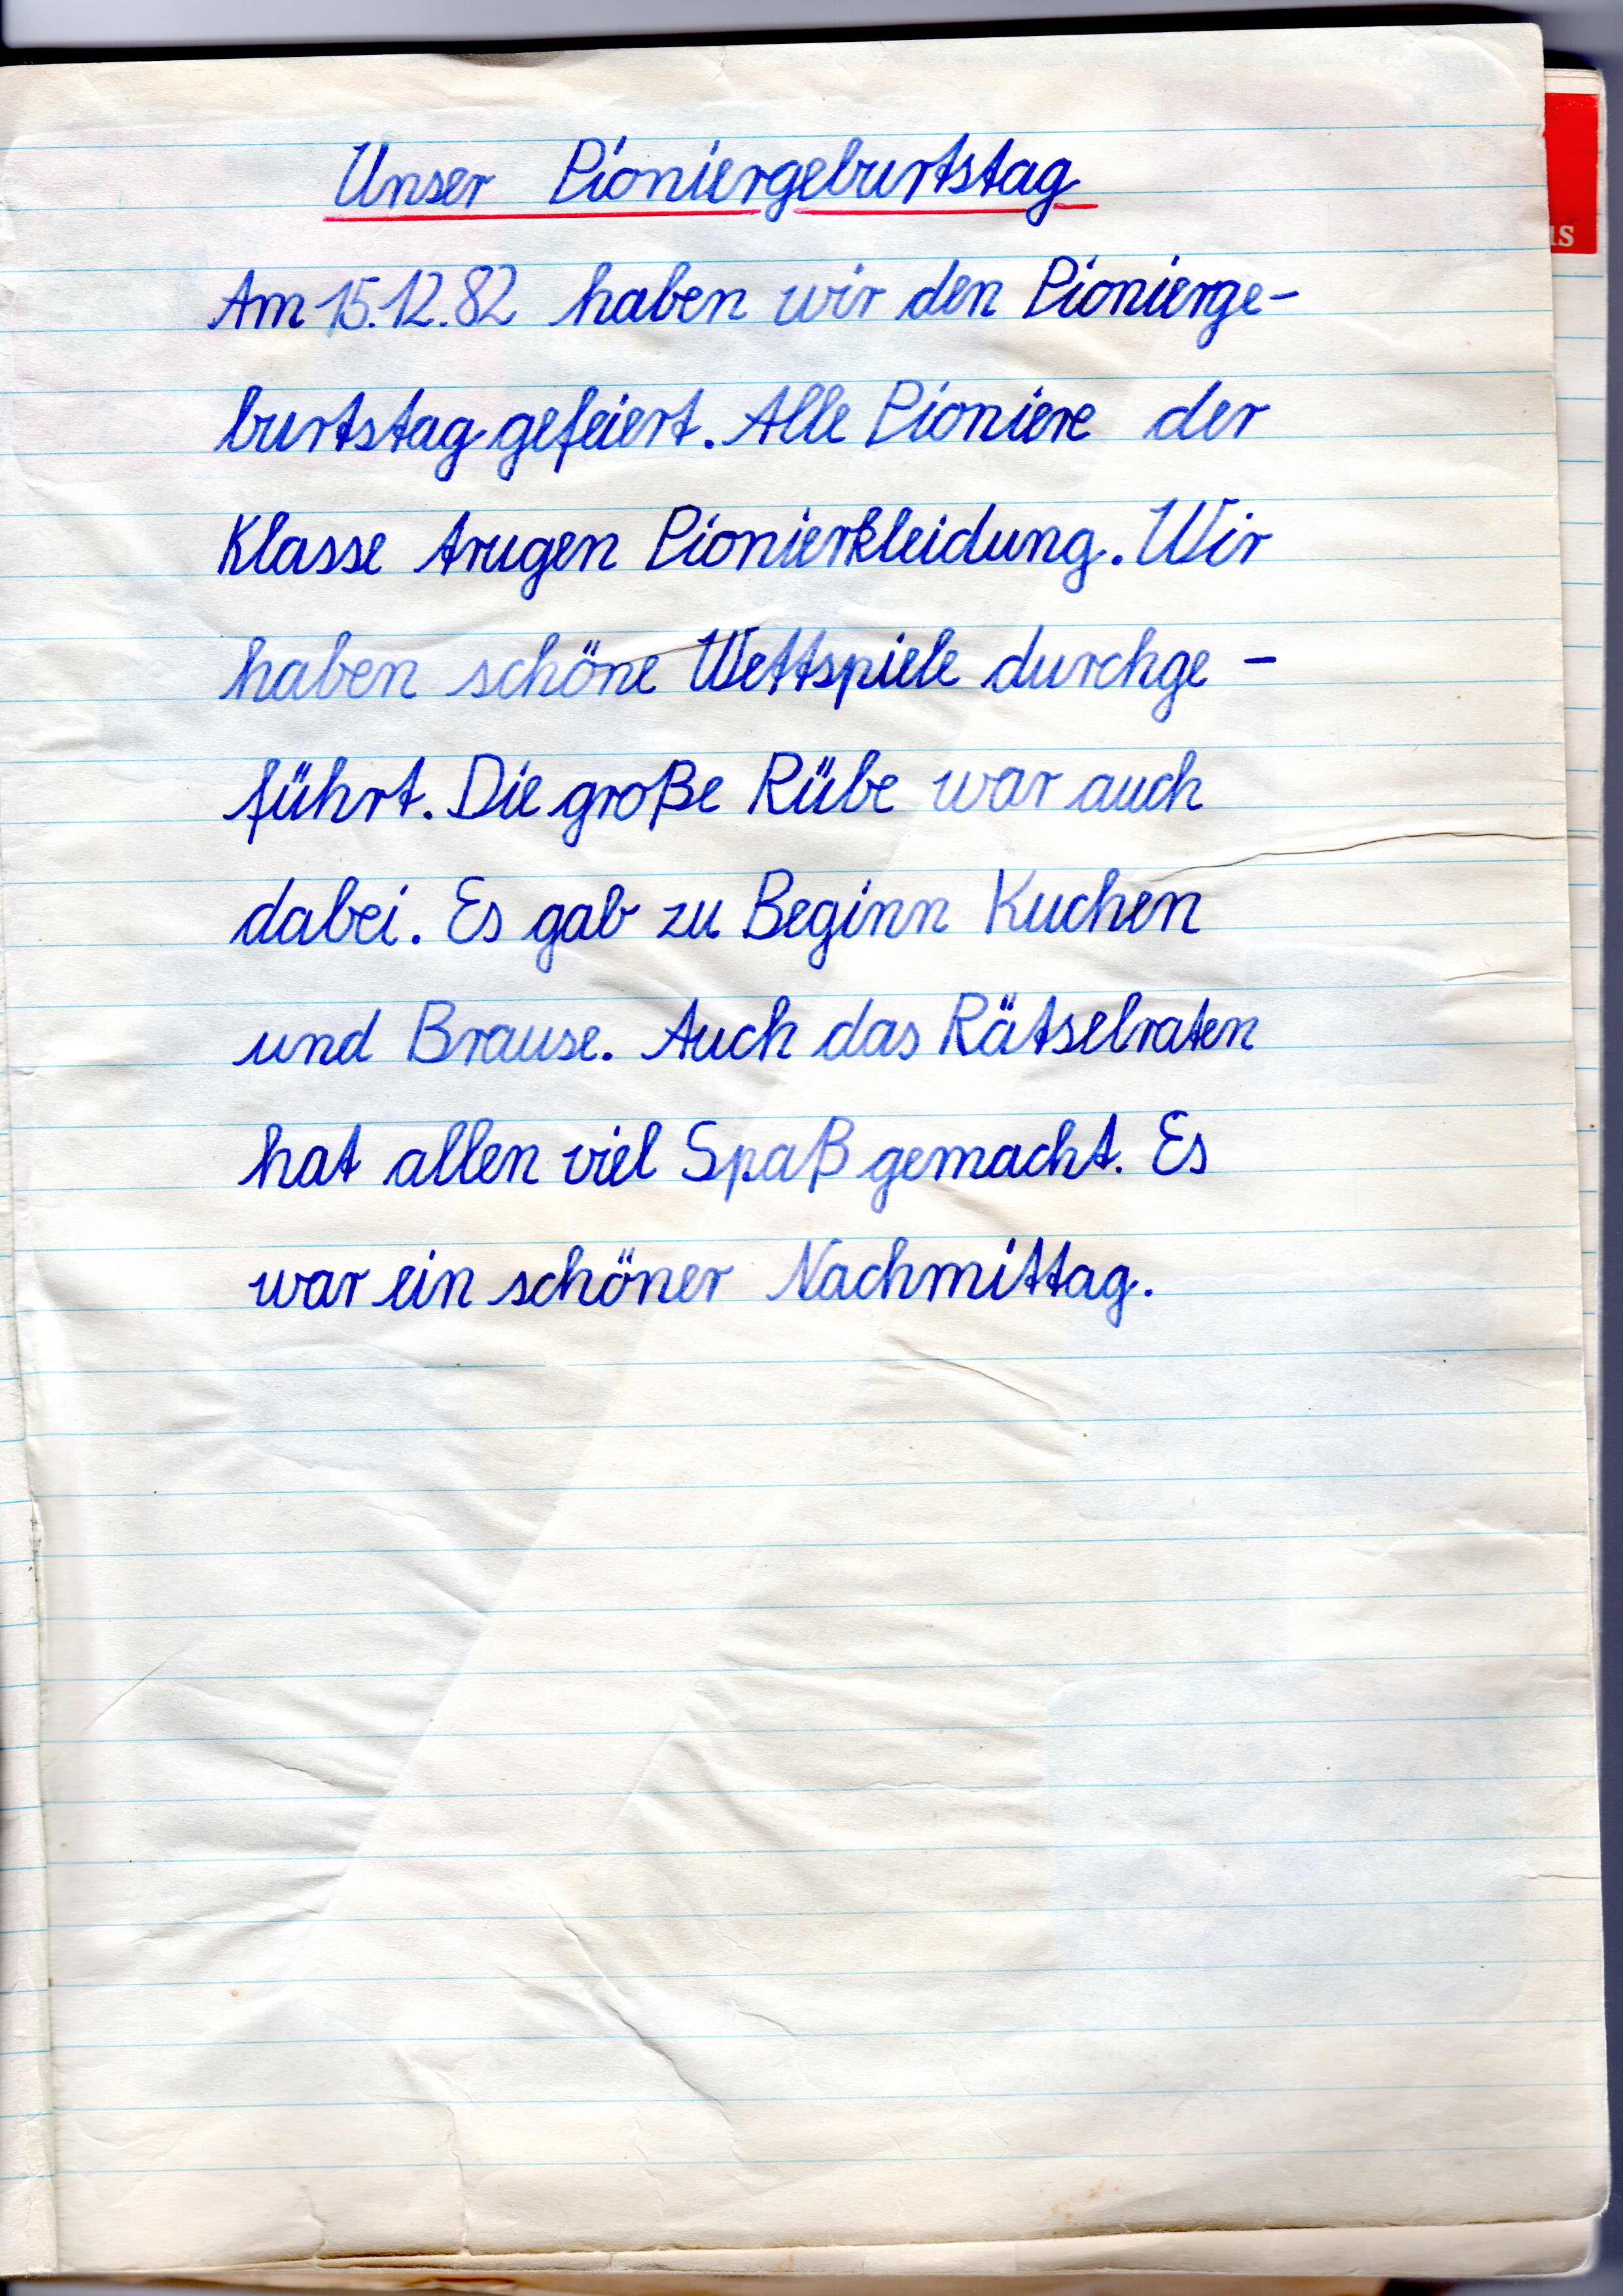 Unser Pioniergeburtstag
Am 15.12.82 haben wir den Pionierge-
burtstag gefeiert. Alle Pioniere der
Klasse trugen Pionierkleidung. Wir
haben schöne Wettspiele durchge-
führt. Die große Rübe war auch
dabei. Es gab zu Beginn Kuchen
und Brause. Auch das Rätselraten
hat allen viel Spaß gemacht. Es
war ein schöner Nachmittag.